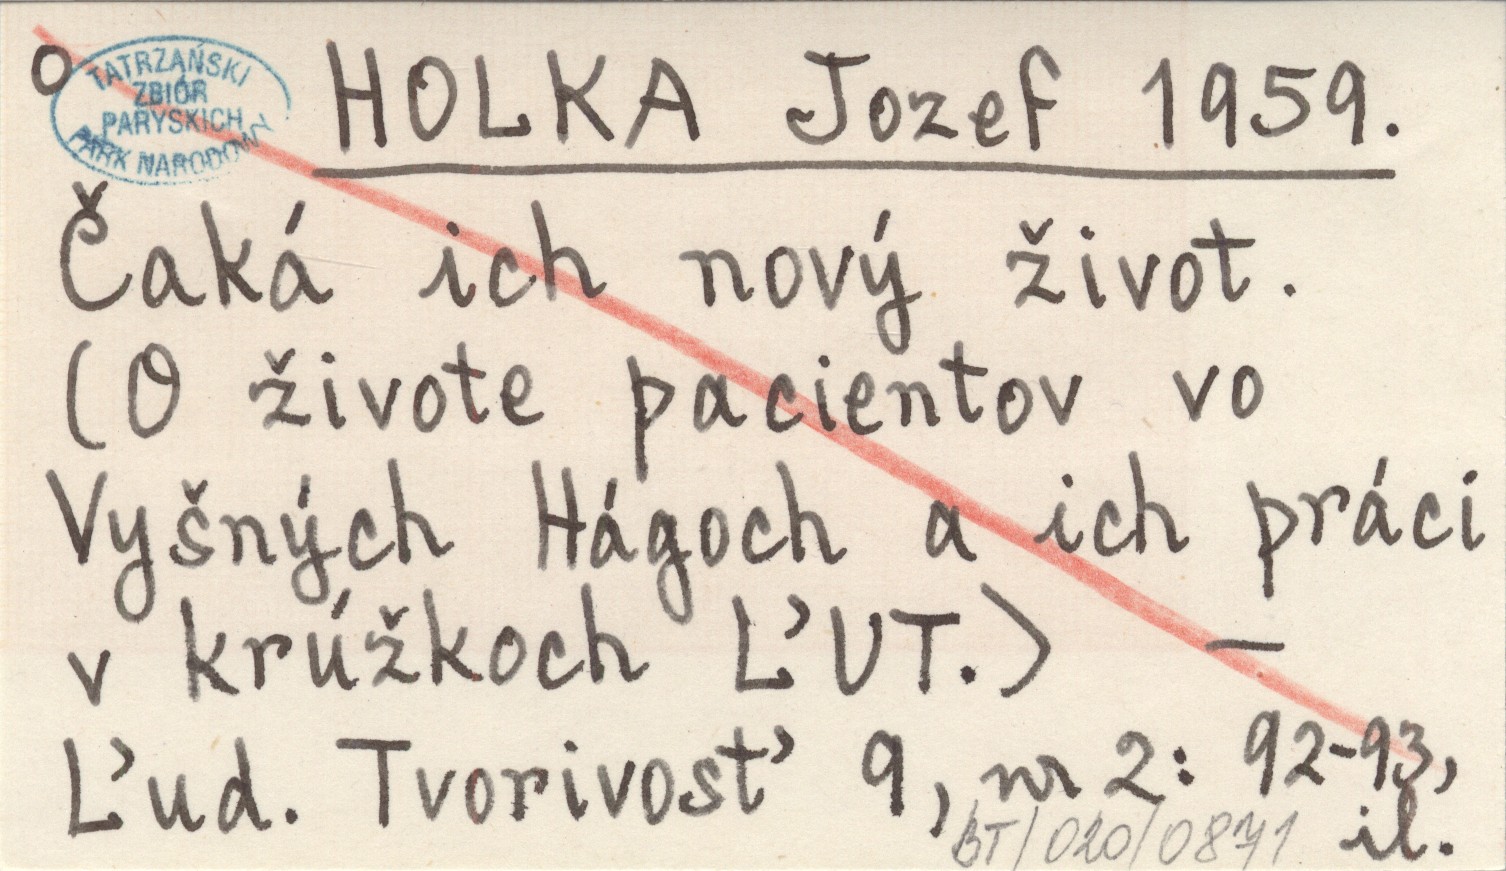 o
TATRZAŃSKI
ZBIÓR
PARYSKICH
PARK NARODOWY
HOLKA Jozef 1959.
Čaká ich nový život.
(O živote pacientov vo
Vyšných Hágoch a ich práci
v krúžkoch ĽUT.) —
Ľud. Tvorivosť 9, nr 2: 92-93,
il.
BT/020/0871